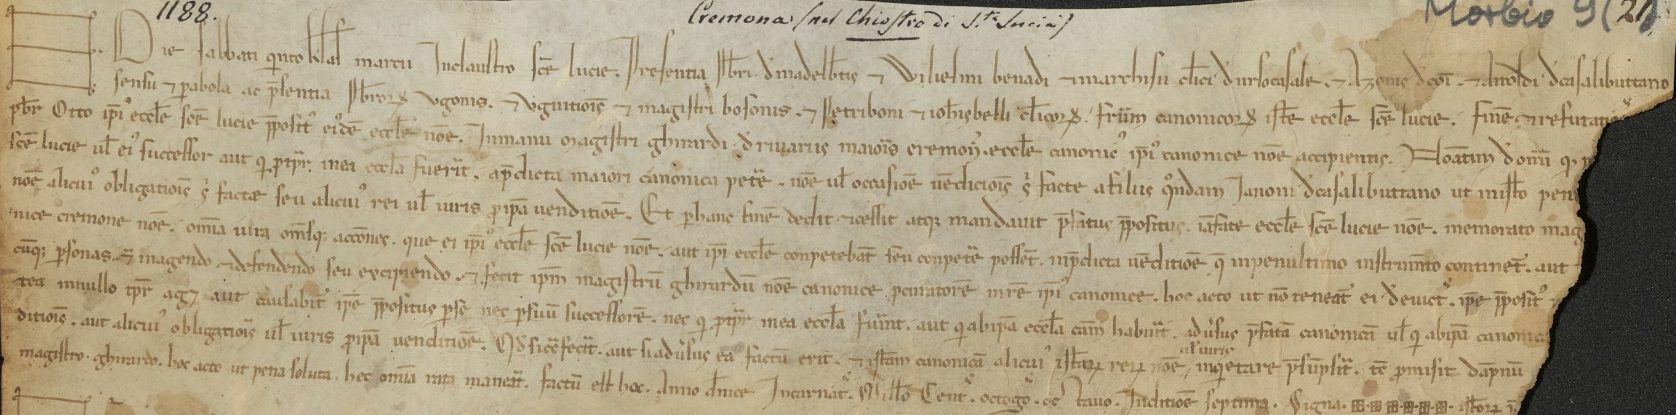 1188.
Cremona (nel Chiostro di S.ta Lucia)
Morbio 9 (21)
Die sabbati qinto kl'al martii Inclaustro sce lucie. Presentia Pbri dmadelbtis et Wilielmi benadi et marchisii clici durlocasale. et Azonis dcoi. et Arioldi dcasalibuttano
sensu et parabola ac psentia Pbroroꝝ Ugonis. et Uguitiois et magistri bosonis. et Petriboni et iohisbelli clicoꝝ. frum canonicorꝝ iste eccle sce lucie. fine et refutatioe
pbr Otto ipi' eccle sce lucie pposit' ei'de eccle noe. Inmanu magistri ghirardi d rivariis maiois cremon' eccle canonic' ipi' canonice noe accipientis. Noatim domi q p
sce lucie ul' ei' successor aut q p tpr' in ea eccla fuerit. apdicta maiori canonica petere. noe ul' occasioe vendiciois s facte a filiis qondam Janoni dcasalibuttano ut misto pen
noe alicui' obligatiois s facte seu alicui' rei ul' iuris p ipa venditioe. Et p hanc fine dedit et cessit atq mandavit pfatus ppositus. iafate eccle sce lucie noe. memorato mag
nice cremone noe. omia iura omsq acciones. que ei ipi' eccle sce lucie noe. aut ipi eccle conpetebat seu conpete posset. inpdicta venditioe. q inpenultimo instrumto continet. aut
cuq psonas. et in agendo et defendendo seu excipiendo. et fecit ipm magistru ghirardu noe canonice pcuratore in re ipi' canonice. hoc acto ut no teneat ei d evict. ipe pposit'
tea in nullo tpr' aget aut causabit ipe ppositus p se nec p suu successore. nec q p tpr' in ea eccla fuerit. aut q ab ipa eccla cam habuit. adusus pfata canonica ul' q ab ipa canonica
ditiois. aut alicui' obligatiois ul' iuris p ipa venditioe. Qd sic fecit. aut si adusus ea factu erit. et ista canonica alicui' istarꝝ rerꝝ noe ul' iuris inqetare psupsit. te pmisit dapnu
magistro ghirardo. hoc acto ut pena soluta. hec omia rata maneat. factu est hoc. Anno dnice Incarnat. Millo Cent. octogo. octavo. Inditioe septima. Signa. ⊞.⊞.⊞.⊞.⊞.⊞. istorꝝ